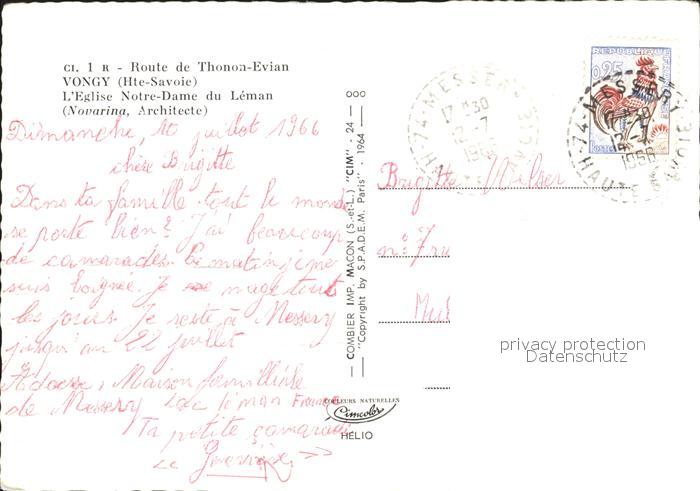 CI. 1 R - Route de Thonon-Evian
VONGY (Hte-Savoie)
L'Eglise Notre-Dame du Léman
(Novarina, Architecte)
Dimanche, 10 juillet 1966
chère Brigitte
Dans ta famille tout le monde
se porte bien? J'ai beaucoup
de camarades. Ce matin je me
suis baignée. Je nage tout
les jours. Je reste à Messery
jusqu'au 22 juillet
Adresse, Maison familiale
de Messery Lac Léman France
Ta petite camarade
COMBIER IMP. MACON (S.-et-L.) "CIM" - 24 -
"Copyright by S.P.A.D.E.M. Paris" - 1964
COULEURS NATURELLES
Cimcolor
HÉLIO
74-MESSERY
17 H 30
12-7
1966
HTE SAVOIE
0,25
74-MESSERY
17 H 30
12-7
1966
HAUTE SAVOIE
Brigitte Wilser
n°: 7
privacy protection
Datenschutz